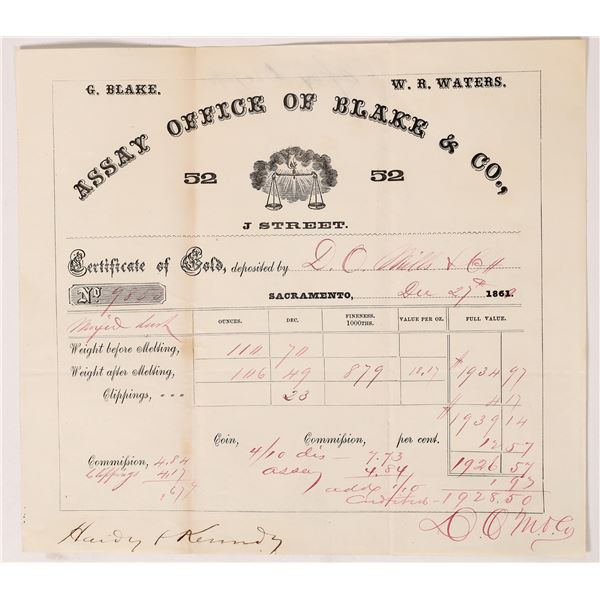 G. BLAKE. W. R. WATERS.
ASSAY OFFICE OF BLAKE & CO.,
52 52
J STREET.
Certificate of Gold, deposited by D. O. Mills & Co
No 985
SACRAMENTO, Dec 27th 186
OUNCES. DEC. FINENESS. 1000THS. VALUE PER OZ. FULL VALUE.
Mixed dust
Weight before Melting, 110 70
Weight after Melting, 106 49 879 18.17 $1934 97
Clippings, 23 $ 4 17
$1939 14
Coin, Commission, per cent. 12.57
4/10 dis - 7.73 1926.57
Commission, 4.84 assay 4.84
Clippings 4.17 adds 1/10 1.93
.67 1928.50
D. O. M. & Co
Hardy & Kennedy